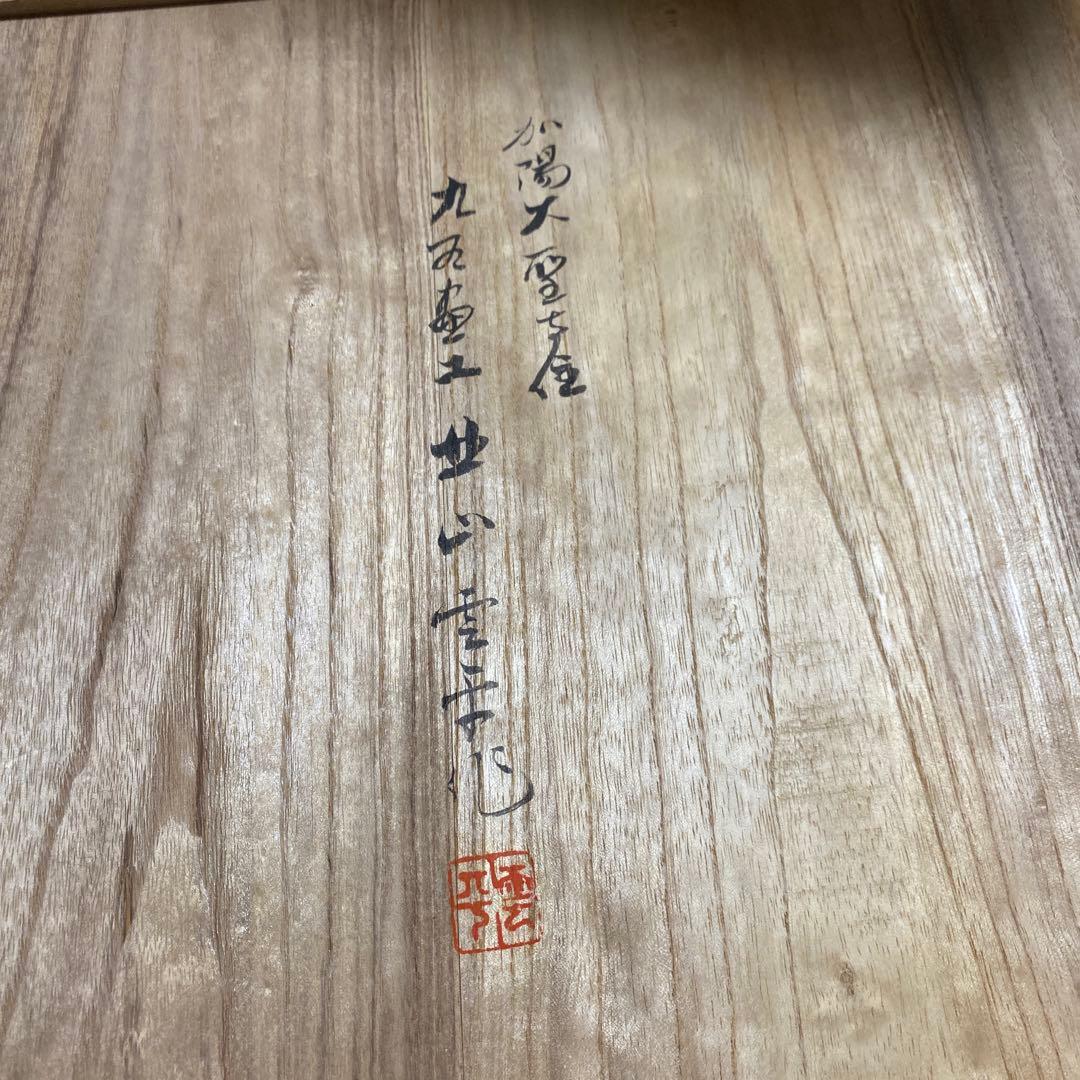 加陽大聖寺住
九谷畫工 廿山雲平作
雲平